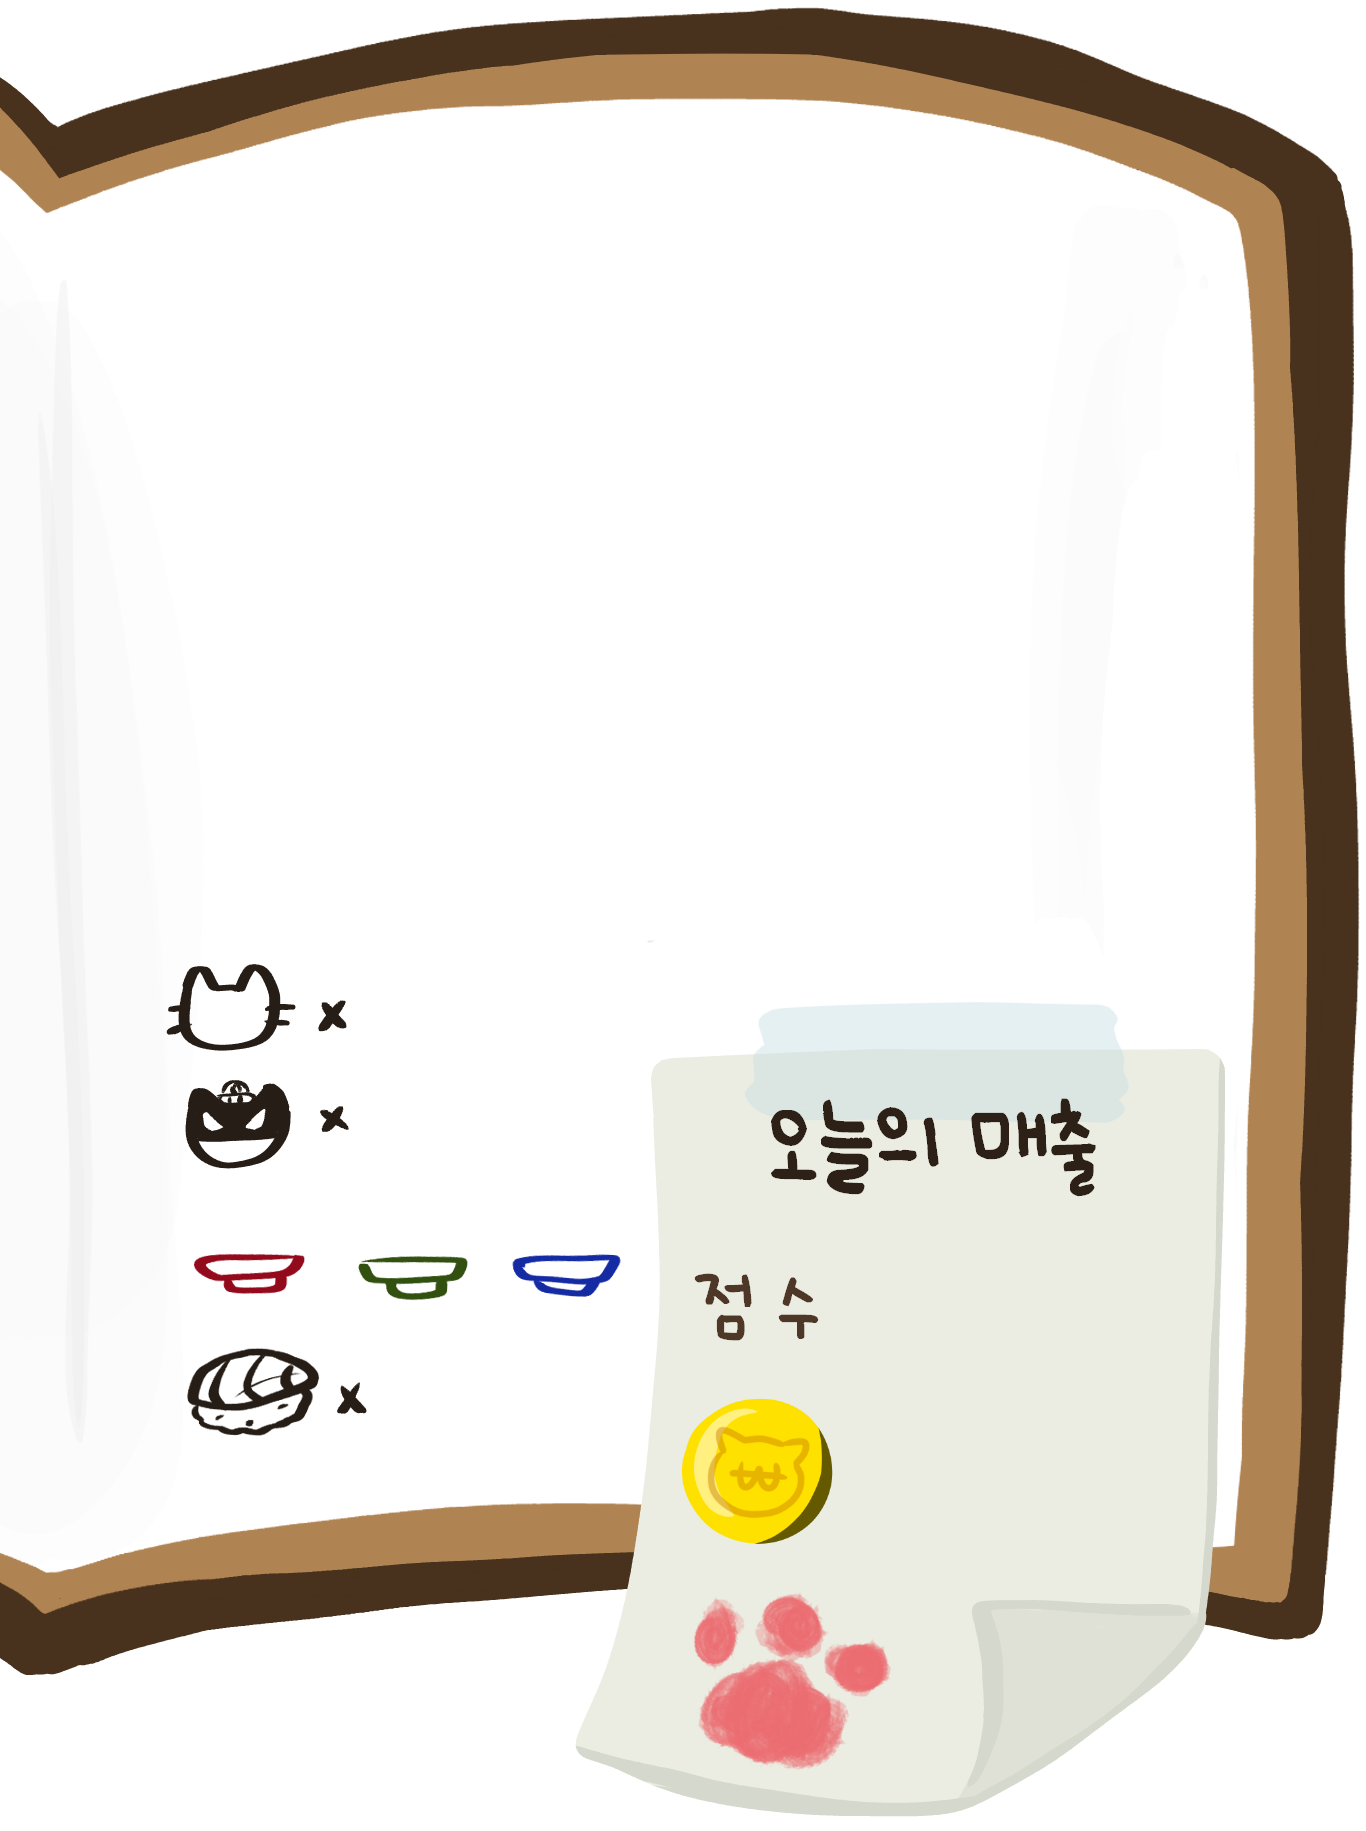 x
x
x
오늘의 매출
점수
₩